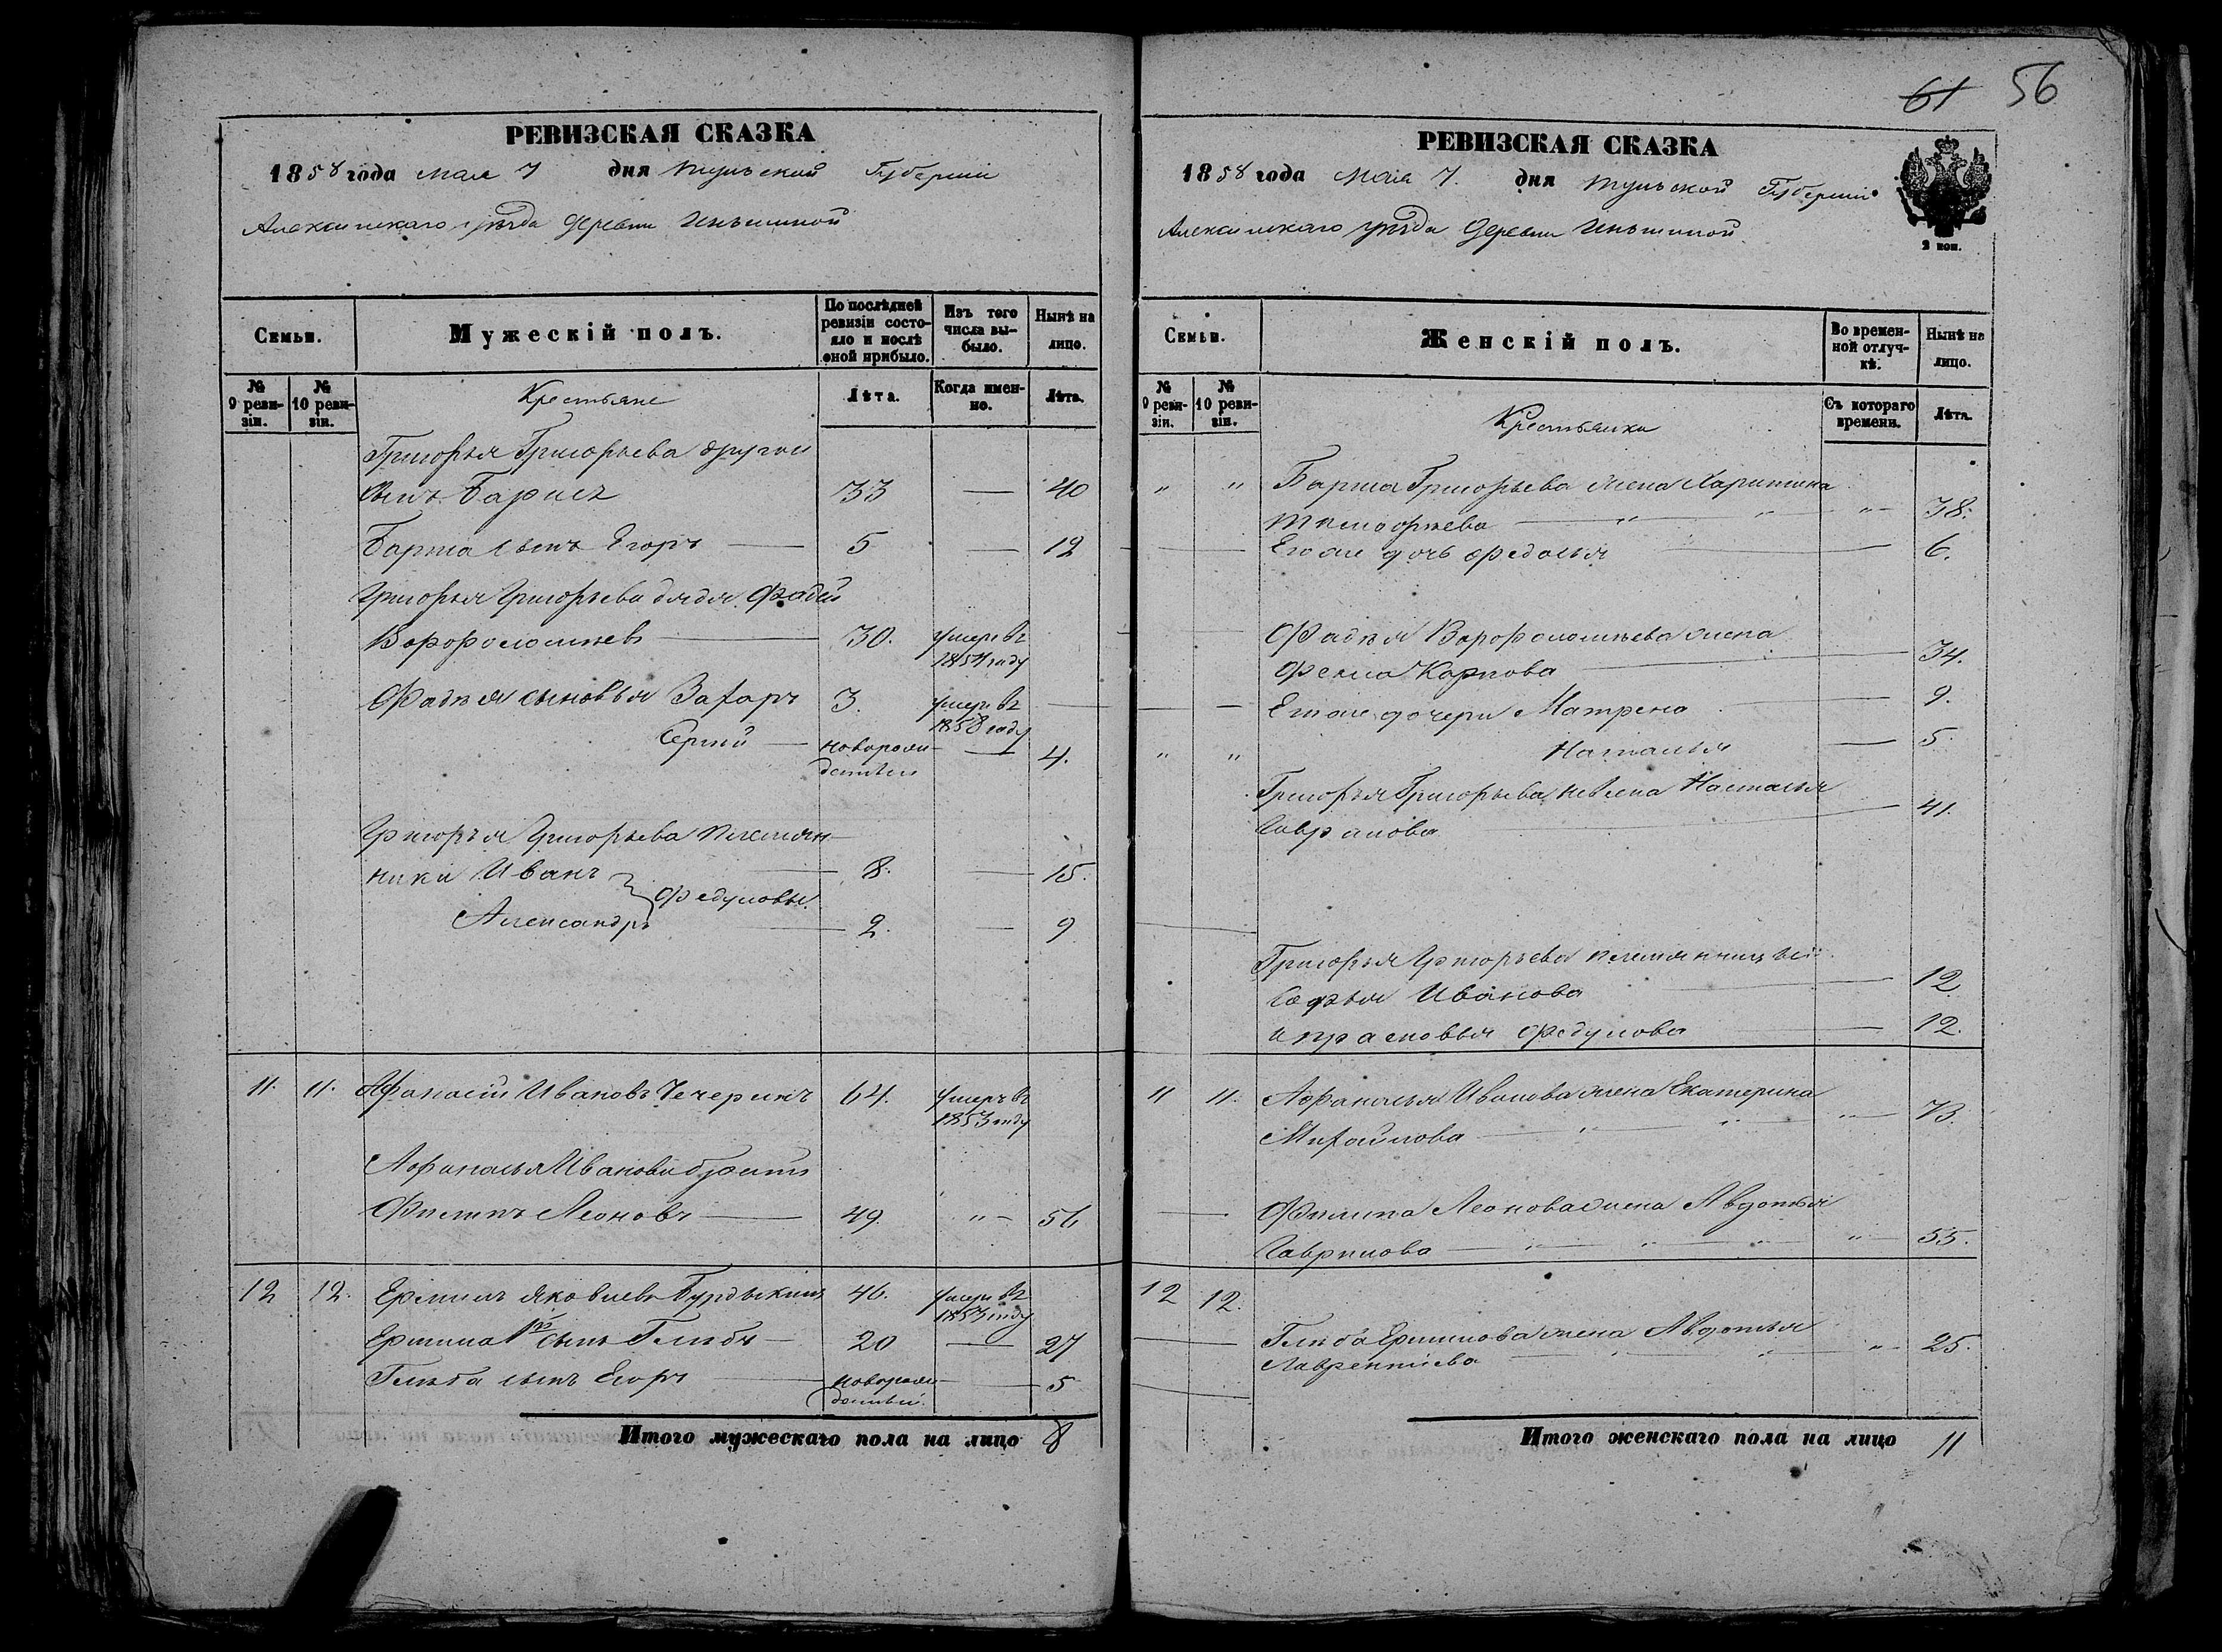 61 56
РЕВИЗСКАЯ СКАЗКА
1858 года мая 7 дня Тульской Губерніи
Алексинскаго уѣзда деревни Иньшиной
Семьи.
Мужескій полъ.
По послѣдней ревизіи состояло и послѣ оной прибыло.
Изъ того числа выбыло.
Нынѣ на лицо.
№ 9 ревизіи.
№ 10 ревизіи.
Крестьяне
Лѣта.
Когда именно.
Лѣта.
Григорья Григорьева другой
сынъ Борисъ 33 — 40
Бориса сынъ Егоръ — 5 — 12
Григорья Григорьева дядя Фадей
Ворфоломѣевъ — 30. умеръ въ
1854 году
Фадея сыновья Захаръ 3. умеръ въ —
1858 году
Сергей — новорож — 4.
денный
Григорья Григорьева племян
ники Иванъ — 8. — 15.
Федуловы
Александръ — 2. — 9
11. 11. Афанасій Ивановъ Чечеринъ 64. умеръ въ
1853 году
Афанасья Иванова братъ
Филипъ Леоновъ — 49. "— 56
12 12. Ермилъ Яковлевъ Бурдыкинъ 46. умеръ въ
1853 году
Ермила 1й сынъ Глѣбъ — 20 — 27
Глѣба сынъ Егоръ — новорож — 5
денный.
Итого мужескаго пола на лицо 8
РЕВИЗСКАЯ СКАЗКА
1858 года Мая 7. дня Тульской Губерніи
Алексинскаго уѣзда деревни Иньшиной
2 коп.
Семьи.
Женскій полъ.
Во временной отлучкѣ.
Нынѣ на лицо.
№ 9 ревизіи.
№ 10 ревизіи.
Крестьянки
Съ котораго времени.
Лѣта.
" " Бориса Григорьева жена Харитина
Тимофѣева — " " "— 38.
Его же дочь Федосья — 6.
Фадея Ворфоломѣева жена
Фекла Карпова — 34.
Его же дочери Матрена — 9.
" " Наталья — 5
Григорья Григорьева Настасья
Гаврилова — 41.
Григорья Григорьева племянницы
Софья Иванова — 12
и Прасковья Федулова — 12.
11 11. Афанасья Иванова жена Екатерина
Михайлова — " " "— 73.
Филипа Леонова жена Авдотья
Гаврилова — " " " "— 55.
12 12.
Глѣба Ермилова жена Авдотья
Лаврентіева — " " "— 25.
Итого женскаго пола на лицо 11